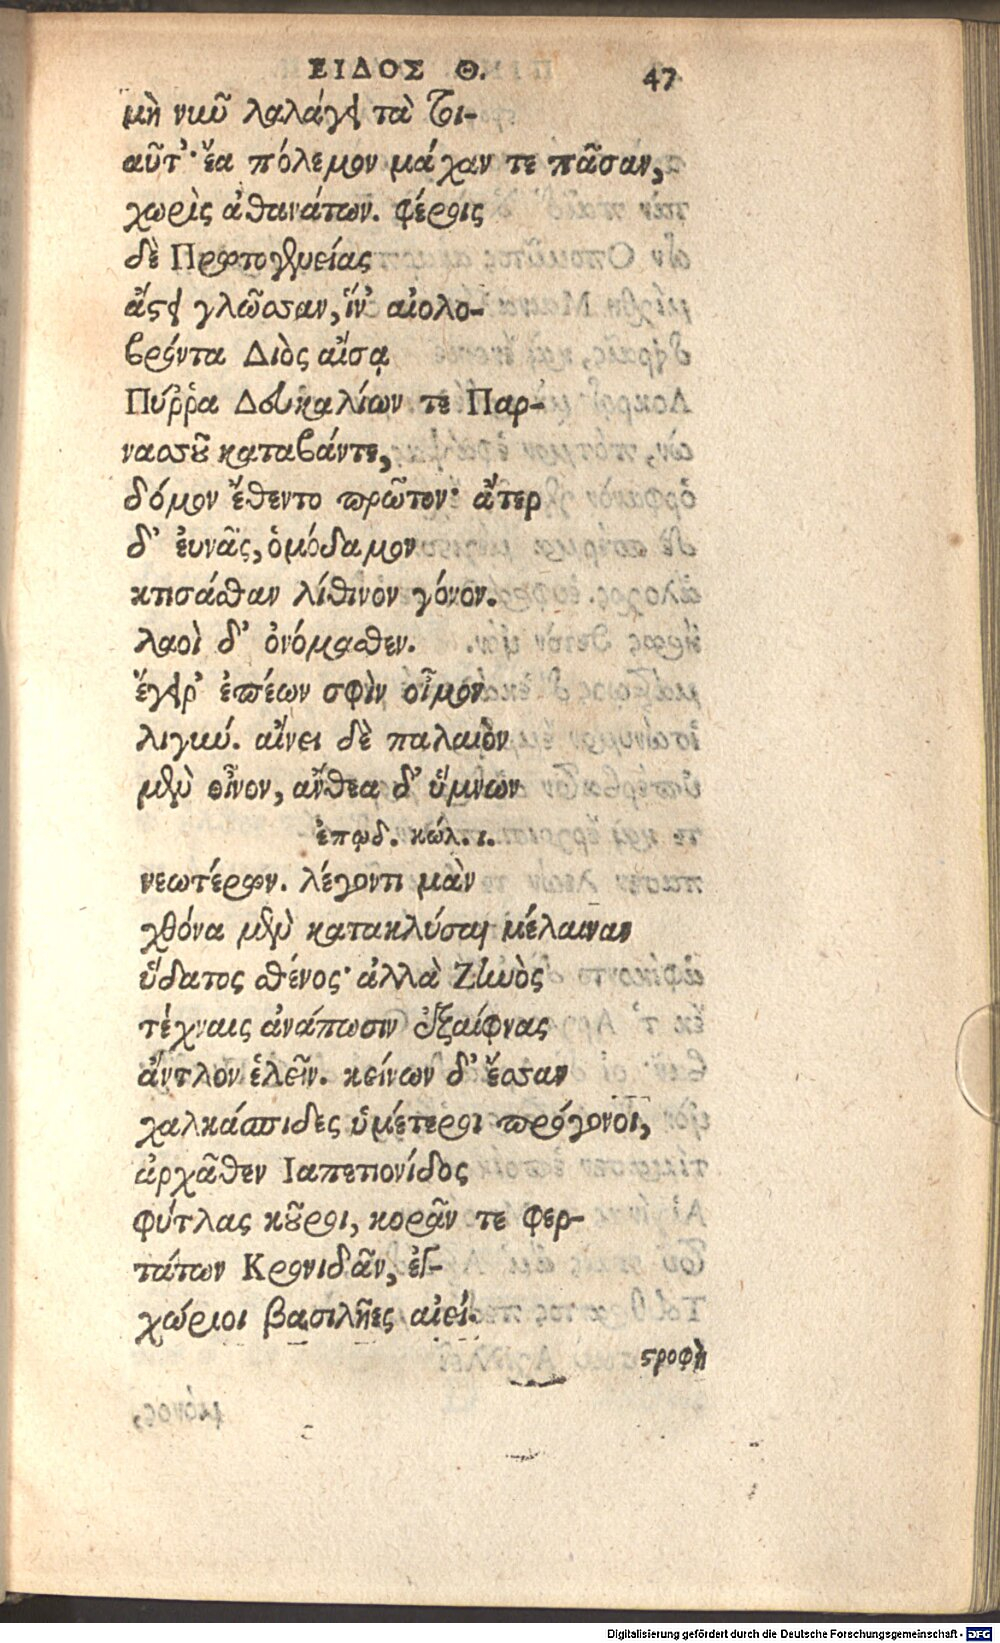 ΕΙΔΟΣ Θ. 47
μὴ νιῦ λαλάγει τὰ τοι-
αῦτ᾽· ἔα πόλεμον μάχαν τε πᾶσαν,
χωρὶς ἀθανάτων. φέροις
δὲ Πρωτογενείας
ἄστει γλῶσσαν, ἵν᾽ αἰολο-
βρόντα Διὸς αἴσᾳ
Πύῤῥα Δευκαλίων τε Παρ-
νασσοῦ καταβάντε,
δόμον ἔθεντο πρῶτον· ἄτερ
δ᾽ ἐυνᾶς, ὁμόδαμον
κτισάσθαν λίθινον γόνον.
λαοὶ δ᾽ ὀνόμασθεν.
ἔγειρ᾽ ἐπέων σφὶν οἶμον
λιγύν. αἴνει δὲ παλαιὸν
μὲν οἶνον, ἄνθεα δ᾽ ὕμνων
ἐπῳδ. κώλ. ι.
νεωτέρων. λέγοντι μὰν
χθόνα μὲν κατακλύσαι μέλαιναν
ὕδατος σθένος· ἀλλὰ Ζηνὸς
τέχναις ἀνάπωσιν ἐξαίφνας
ἄντλον ἑλεῖν. κείνων δ᾽ ἔσσαν
χαλκάσπιδες ὑμέτεροι πρόγονοι,
ἀρχᾶθεν Ιαπετιονίδος
φύτλας κοῦροι, κορᾶν τε φερ-
τάτων Κρονιδᾶν, ἐγ-
χώριοι βασιλῆες αἰεί.
στροφὴ
Digitalisierung gefördert durch die Deutsche Forschungsgemeinschaft - DFG